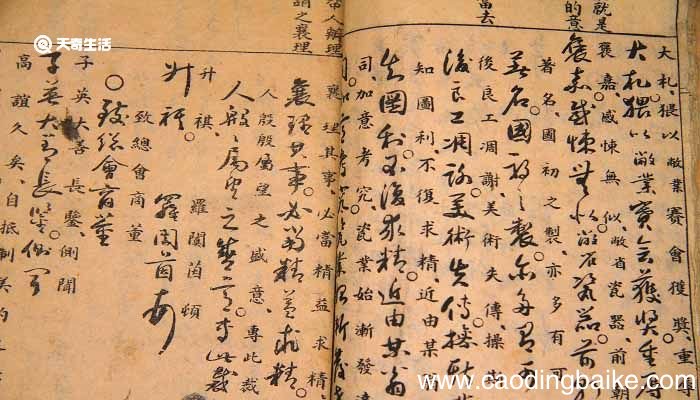 就是
的意
當去
大札猥以敝業賽會獲獎重
大札猥以敝業賽會獲獎重厚
褒嘉感悚無似。敝省瓷器前朝
褒嘉感悚無似敝省瓷器前
著名。國初之製亦多有可
著名國初之製亦多有可
後良工凋謝。美術失傳。操
後良工凋謝美術失傳操斯業
知圖利。不復求精。近由某
知圖利不復求精近由某省
司。加意考究。瓷業始漸發
帶人辦理
謂之襄理
襄理其事。必當精益求精
襄理其事必當精益求精
人殷殷屬望之盛意。專此裁
人殷殷屬望之盛意專此裁
升祺 羅闓茵頓
升祺 羅闓茵頓
致總會商董
致總會商董
子英大善長鑒側聞
子英大善長鑒側聞
高誼久矣。自抵制美約
天奇生活
www.caodingbaike.com